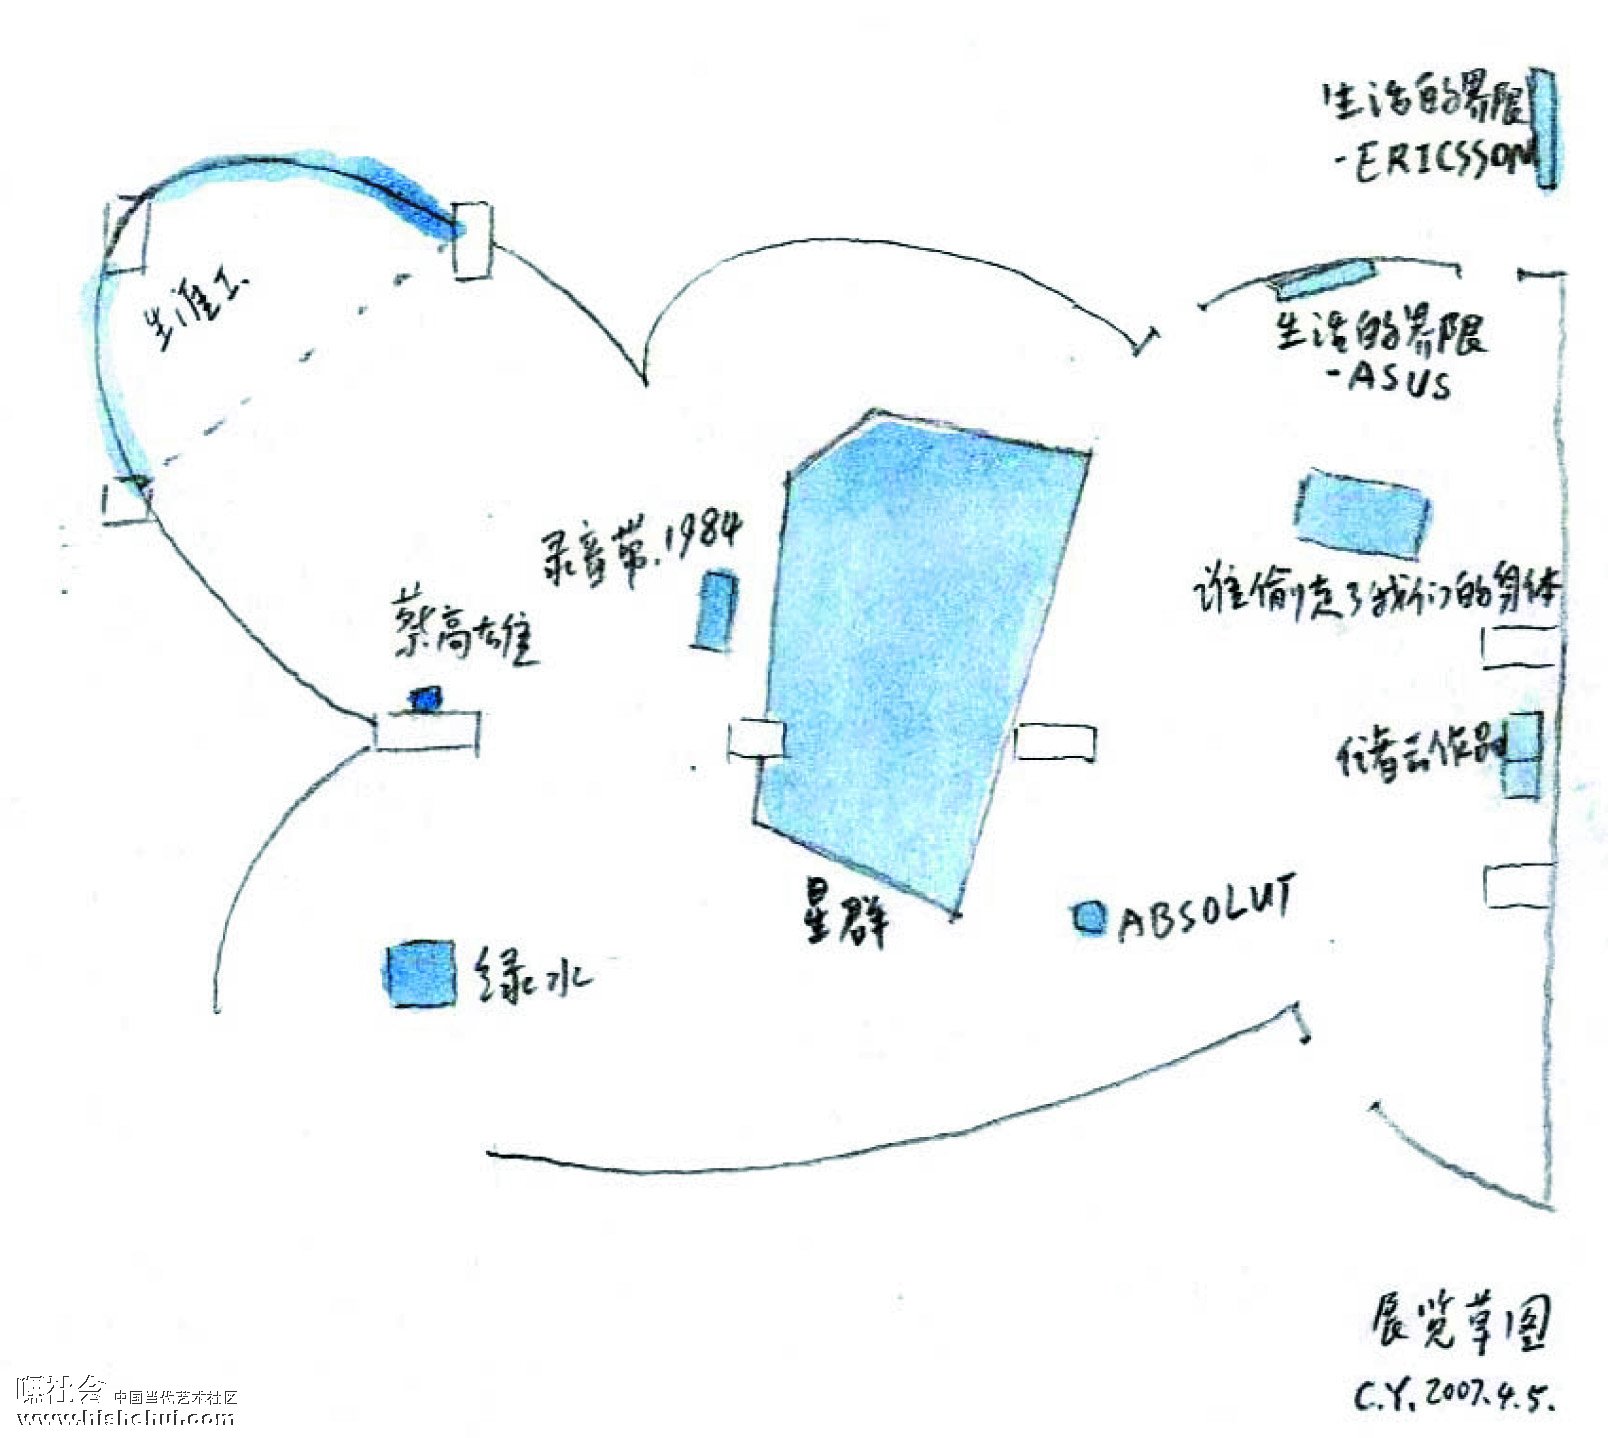 生活的界限
-ERICSSON
生涯I.
生活的界限
-ASUS
录音带.1984
谁偷走了我们的身体
蔡高雄
往者云作品
星群
ABSOLUT
绿水
展览草图
C.Y. 2007.4.5.
嘿社会 中国当代艺术社区
www.hishehui.com